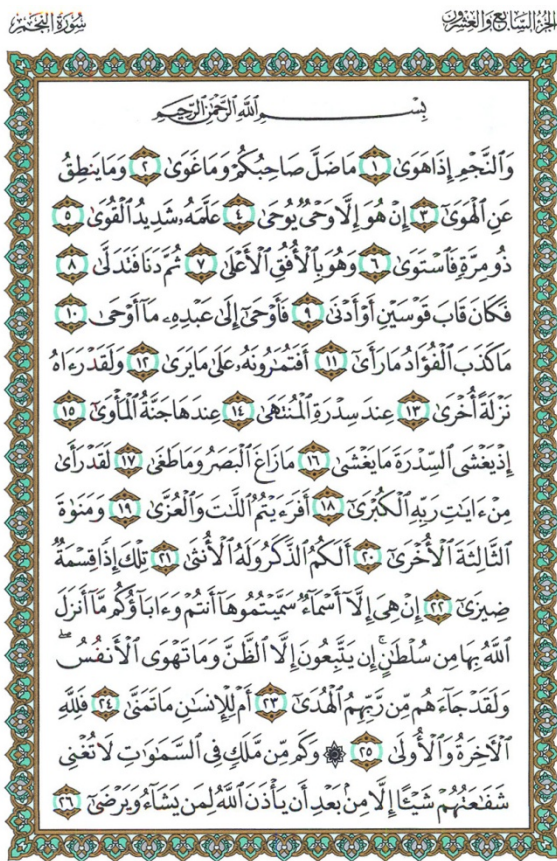 الجزء السابع والعشرون
سورة النجم
بِسْمِ ٱللَّهِ ٱلرَّحْمَٰنِ ٱلرَّحِيمِ
وَٱلنَّجْمِ إِذَا هَوَىٰ ١ مَا ضَلَّ صَاحِبُكُمْ وَمَا غَوَىٰ ٢ وَمَا يَنطِقُ
عَنِ ٱلْهَوَىٰٓ ٣ إِنْ هُوَ إِلَّا وَحْىٌ يُوحَىٰ ٤ عَلَّمَهُۥ شَدِيدُ ٱلْقُوَىٰ ٥
ذُو مِرَّةٍ فَٱسْتَوَىٰ ٦ وَهُوَ بِٱلْأُفُقِ ٱلْأَعْلَىٰ ٧ ثُمَّ دَنَا فَتَدَلَّىٰ ٨
فَكَانَ قَابَ قَوْسَيْنِ أَوْ أَدْنَىٰ ٩ فَأَوْحَىٰٓ إِلَىٰ عَبْدِهِۦ مَآ أَوْحَىٰ ١٠
مَا كَذَبَ ٱلْفُؤَادُ مَا رَأَىٰٓ ١١ أَفَتُمَٰرُونَهُۥ عَلَىٰ مَا يَرَىٰ ١٢ وَلَقَدْ رَءَاهُ
نَزْلَةً أُخْرَىٰ ١٣ عِندَ سِدْرَةِ ٱلْمُنتَهَىٰ ١٤ عِندَهَا جَنَّةُ ٱلْمَأْوَىٰٓ ١٥
إِذْ يَغْشَى ٱلسِّدْرَةَ مَا يَغْشَىٰ ١٦ مَا زَاغَ ٱلْبَصَرُ وَمَا طَغَىٰ ١٧ لَقَدْ رَأَىٰ
مِنْ ءَايَٰتِ رَبِّهِ ٱلْكُبْرَىٰٓ ١٨ أَفَرَءَيْتُمُ ٱللَّٰتَ وَٱلْعُزَّىٰ ١٩ وَمَنَوٰةَ
ٱلثَّالِثَةَ ٱلْأُخْرَىٰٓ ٢٠ أَلَكُمُ ٱلذَّكَرُ وَلَهُ ٱلْأُنثَىٰ ٢١ تِلْكَ إِذًا قِسْمَةٌ
ضِيزَىٰٓ ٢٢ إِنْ هِىَ إِلَّآ أَسْمَآءٌ سَمَّيْتُمُوهَآ أَنتُمْ وَءَابَآؤُكُم مَّآ أَنزَلَ
ٱللَّهُ بِهَا مِن سُلْطَٰنٍ ۚ إِن يَتَّبِعُونَ إِلَّا ٱلظَّنَّ وَمَا تَهْوَى ٱلْأَنفُسُ ۖ
وَلَقَدْ جَآءَهُم مِّن رَّبِّهِمُ ٱلْهُدَىٰٓ ٢٣ أَمْ لِلْإِنسَٰنِ مَا تَمَنَّىٰ ٢٤ فَلِلَّهِ
ٱلْءَاخِرَةُ وَٱلْأُولَىٰ ٢٥ ۞ وَكَم مِّن مَّلَكٍ فِى ٱلسَّمَٰوَٰتِ لَا تُغْنِى
شَفَٰعَتُهُمْ شَيْـًٔا إِلَّا مِنۢ بَعْدِ أَن يَأْذَنَ ٱللَّهُ لِمَن يَشَآءُ وَيَرْضَىٰٓ ٢٦